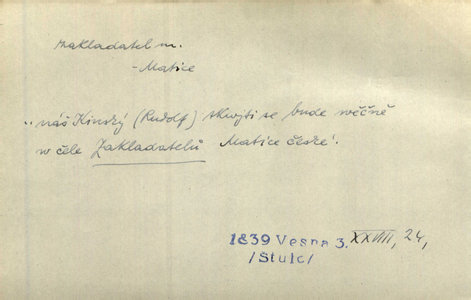 zakladatel m.
- Matice
„náš Kinský (Rudolf) skvjti se bude wěčně
w čele Zakladatelů Matice české‘.
1839 Vesna 3. XXVIII, 24,
/Stulc/